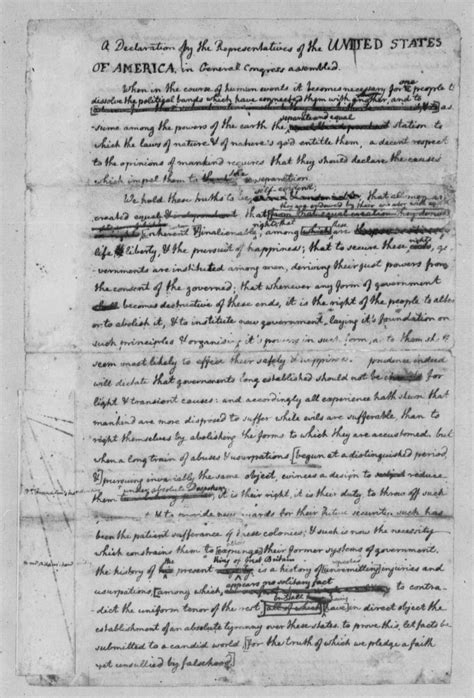 A Declaration by the Representatives of the UNITED STATES
OF AMERICA, in General Congress assembled.
When in the course of human events it becomes necessary for one people to
dissolve the political bands which have connected them with another, and to
as-
separate and equal
sume among the powers of the earth the station to
which the laws of nature & of nature's god entitle them, a decent respect
to the opinions of mankind requires that they should declare the causes
which impel them to the separation.
self-evident,
We hold these truths to be that all men are
created equal that they are endowed by their creator with
rights; that these
inherent & inalienable among which are
life, & liberty, & the pursuit of happiness; that to secure these rights, go-
vernments are instituted among men, deriving their just powers from
the consent of the governed; that whenever any form of government
becomes destructive of these ends, it is the right of the people to alter
or to abolish it, & to institute new government, laying it's foundation on
such principles & organising it's powers in such form, as to them shall
seem most likely to effect their safety & happiness. prudence indeed
will dictate that governments long established should not be changed for
light & transient causes: and accordingly all experience hath shewn that
mankind are more disposed to suffer while evils are sufferable, than to
right themselves by abolishing the forms to which they are accustomed. but
when a long train of abuses & usurpations [begun at a distinguished period,
& pursuing invariably the same object, evinces a design to reduce
under absolute Despotism
them it is their right, it is their duty, to throw off such
& to provide new guards for their future security. such has
been the patient sufferance of these colonies; & such is now the necessity
which constrains them to [expunge] their former systems of government.
the King of Great Britain
the history of present is a history of [unremitting] injuries and
usurpations, [among which, appears no solitary fact to contra-
but all have
dict the uniform tenor of the rest [all of which] [have] in direct object the
establishment of an absolute tyranny over these states. to prove this, let facts be
submitted to a candid world, [for the truth of which we pledge a faith
yet unsullied by falsehood]